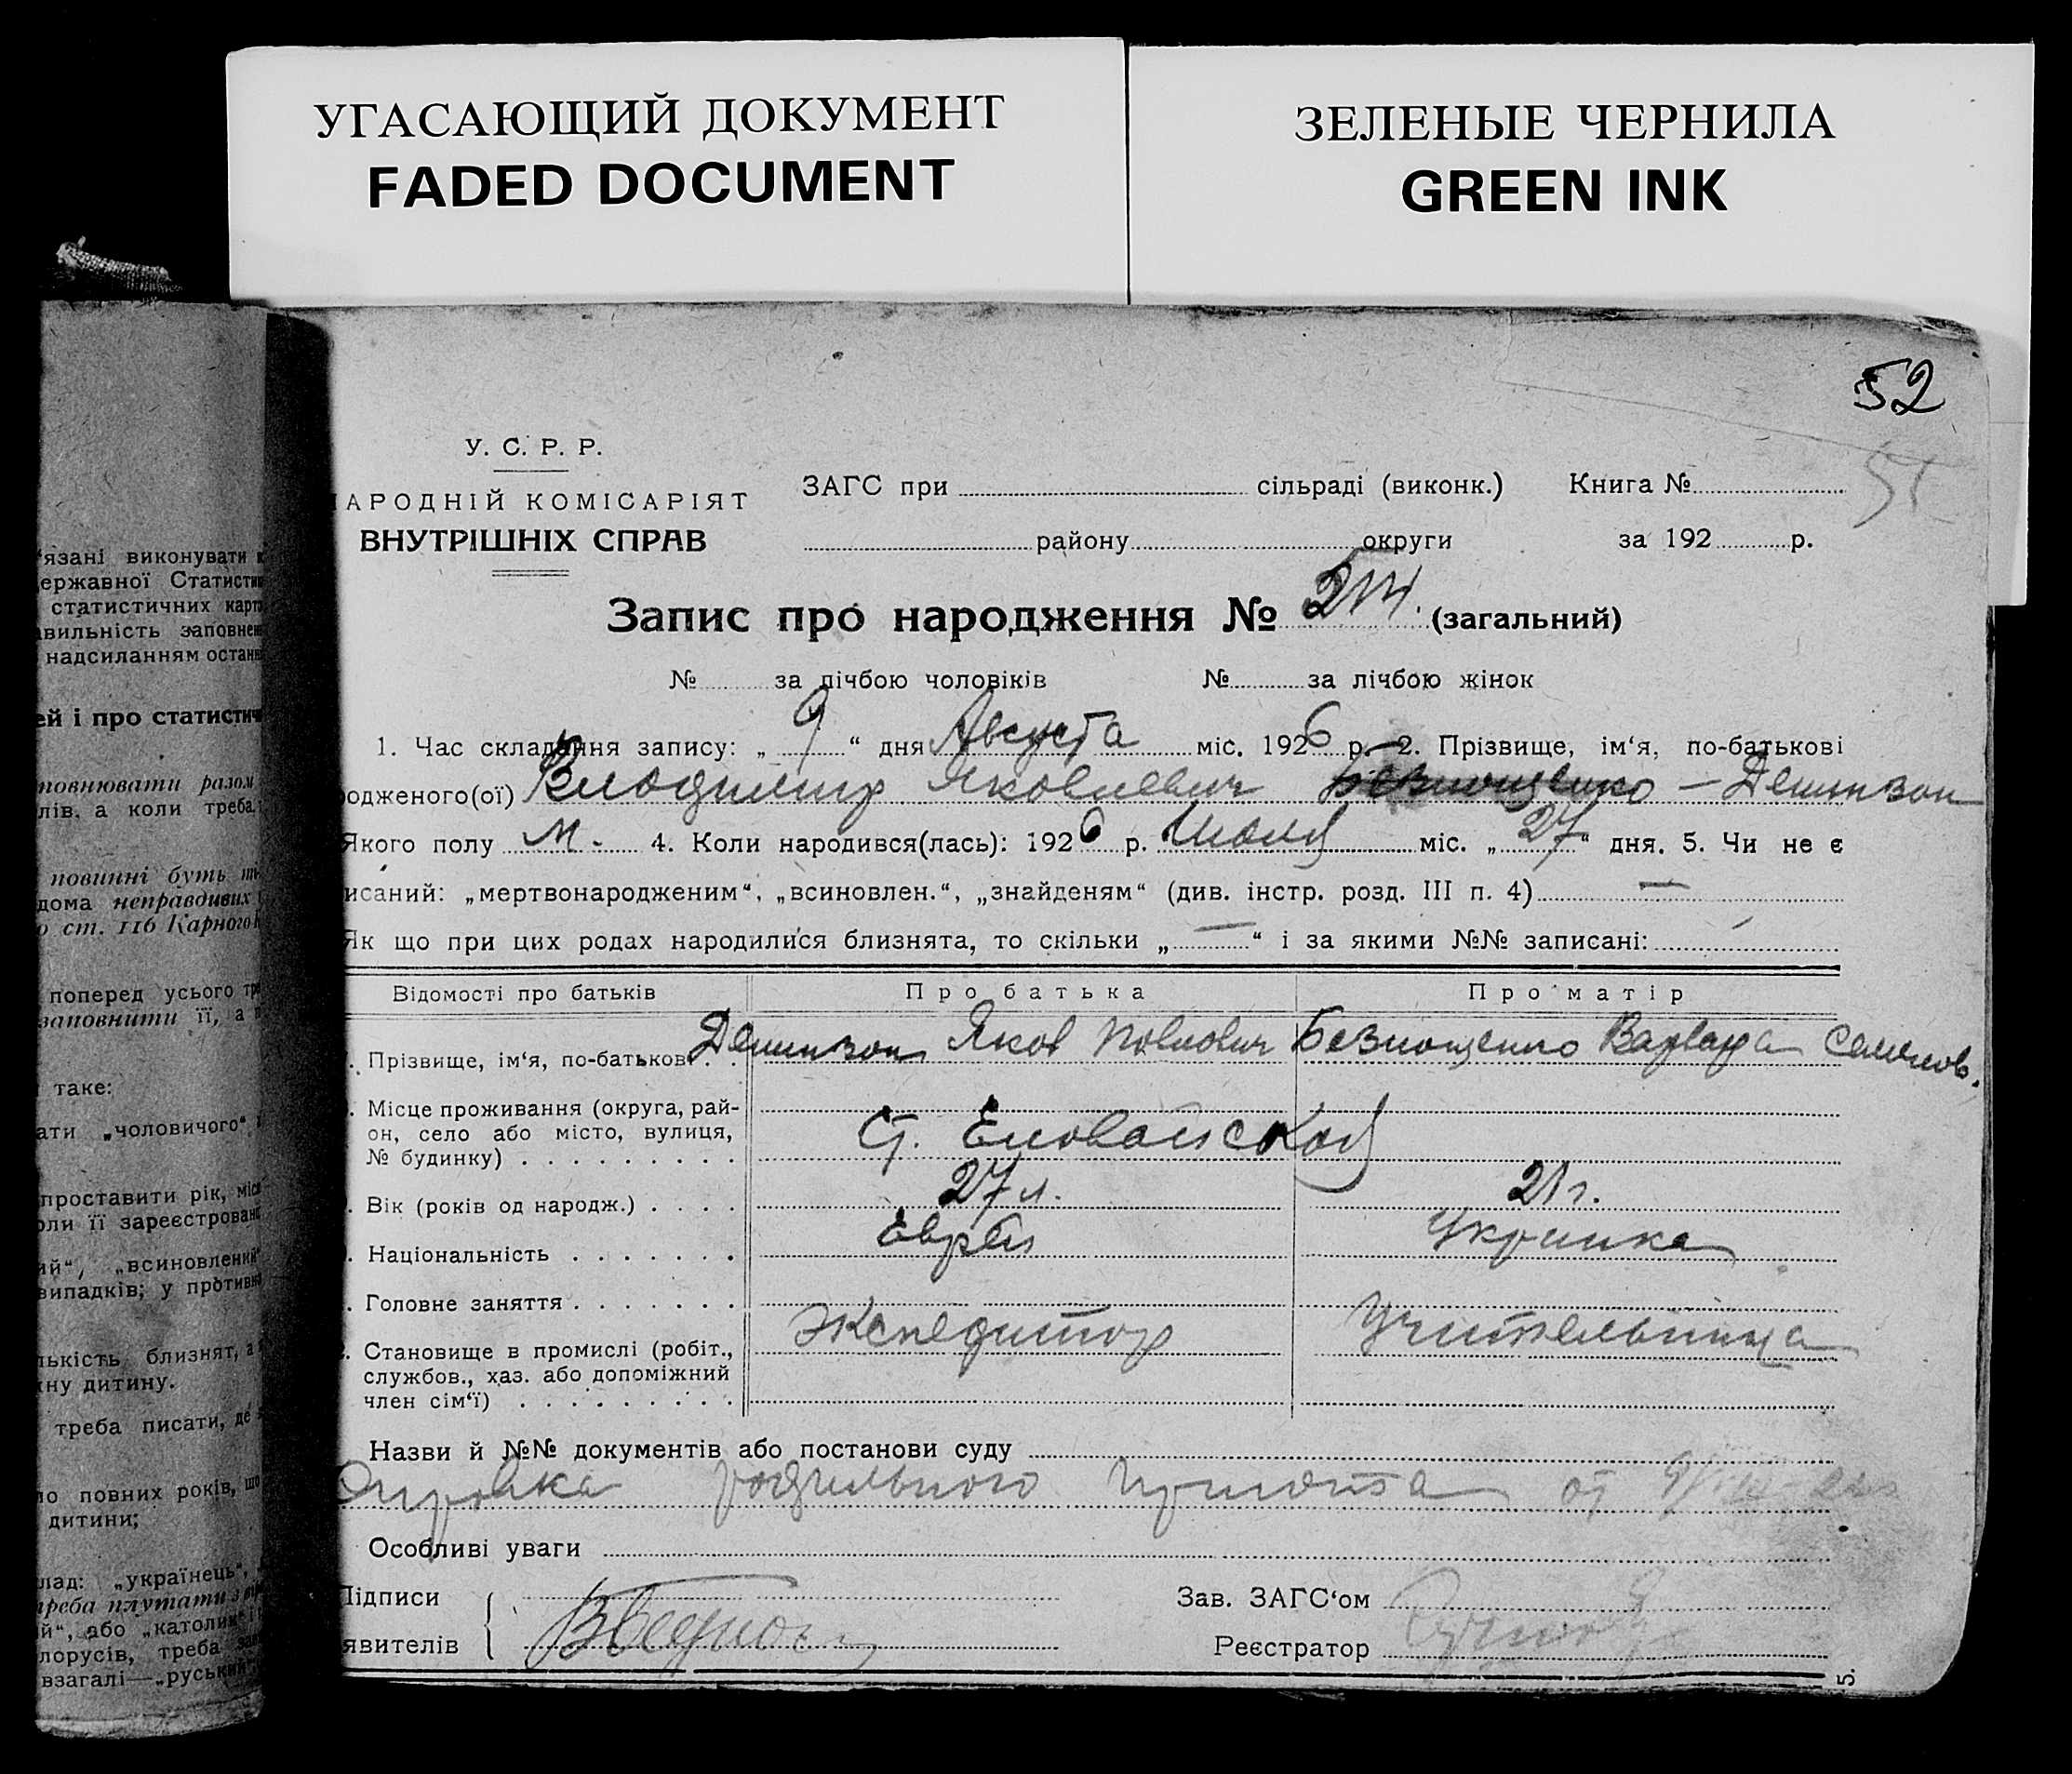 УГАСАЮЩИЙ ДОКУМЕНТ
FADED DOCUMENT
ЗЕЛЕНЫЕ ЧЕРНИЛА
GREEN INK
52
51
У. С. Р. Р.
НАРОДНІЙ КОМІСАРІЯТ
ВНУТРІШНІХ СПРАВ
ЗАГС при сільраді (виконк.) Книга №
району округи за 192 р.
Запис про народження № (загальний)
№ за лічбою чоловіків № за лічбою жінок
1. Час складання запису: „ 9 “ дня Августа міс. 1926 р. 2. Прізвище, ім‘я, по-батькові
одженого(ої) Владимир Яковлевич Безнощенко —
Якого полу м. 4. Коли народився(лась): 1926 р. Июля міс. „ 27 “ дня. 5. Чи не є
исаний: „мертвонародженим“, „всиновлен.“, „знайденям“ (див. інстр. розд. III п. 4) —
Як що при цих родах народилися близнята, то скільки „ — “ і за якими №№ записані:
Відомості про батьків Про батька Про матір
Прізвище, ім‘я, по-батькові Яков Безнощенко Варвара Семенов.
Місце проживання (округа, рай-
он, село або місто, вулиця,
№ будинку) Ст. Еловайская
Вік (років од народж.) 27 л. 21 г.
Національність Еврей Укринка
Головне заняття
Экспедитор Учительница
Становище в промислі (робіт.,
службов., хаз. або допоміжний
член сім‘ї)
Назви й №№ документів або постанови суду
Справка родильного приюта от
Особливі уваги
Підписи
явителів
Зав. ЗАГС‘ом
Реєстратор
5.
‘язані виконувати
ержавної Статистик
статистичних карто
авильність заповнен
надсиланням останн
ей і про статистич
повнювати разом
лів, а коли треба,
повинні буть
дома неправдивих
о ст. 116 Карного К
поперед усього
заповнити її, а
таке:
ати „чоловичого“
проставити рік, міся
оли її зареєстровано
ий“, „всиновлений“
випадків; у противно
лькість близнят, а
ну дитину.
треба писати, де
но повних років, що
дитини;
лад: „українець“,
треба плутати з
й“, або „католик“
лорусів, треба
взагалі—„руський“